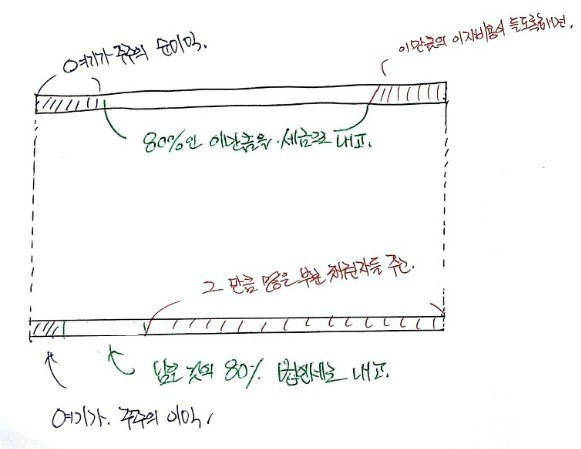 여기가 주주의 순이익.
이만큼의 이자비용이 들도록하면
80%인 이만큼을 세금으로 내고.
그 만큼 많은 부분 채권자들 주고.
남은 것의 80% 법인세로 내고.
여기가 주주의 이익,